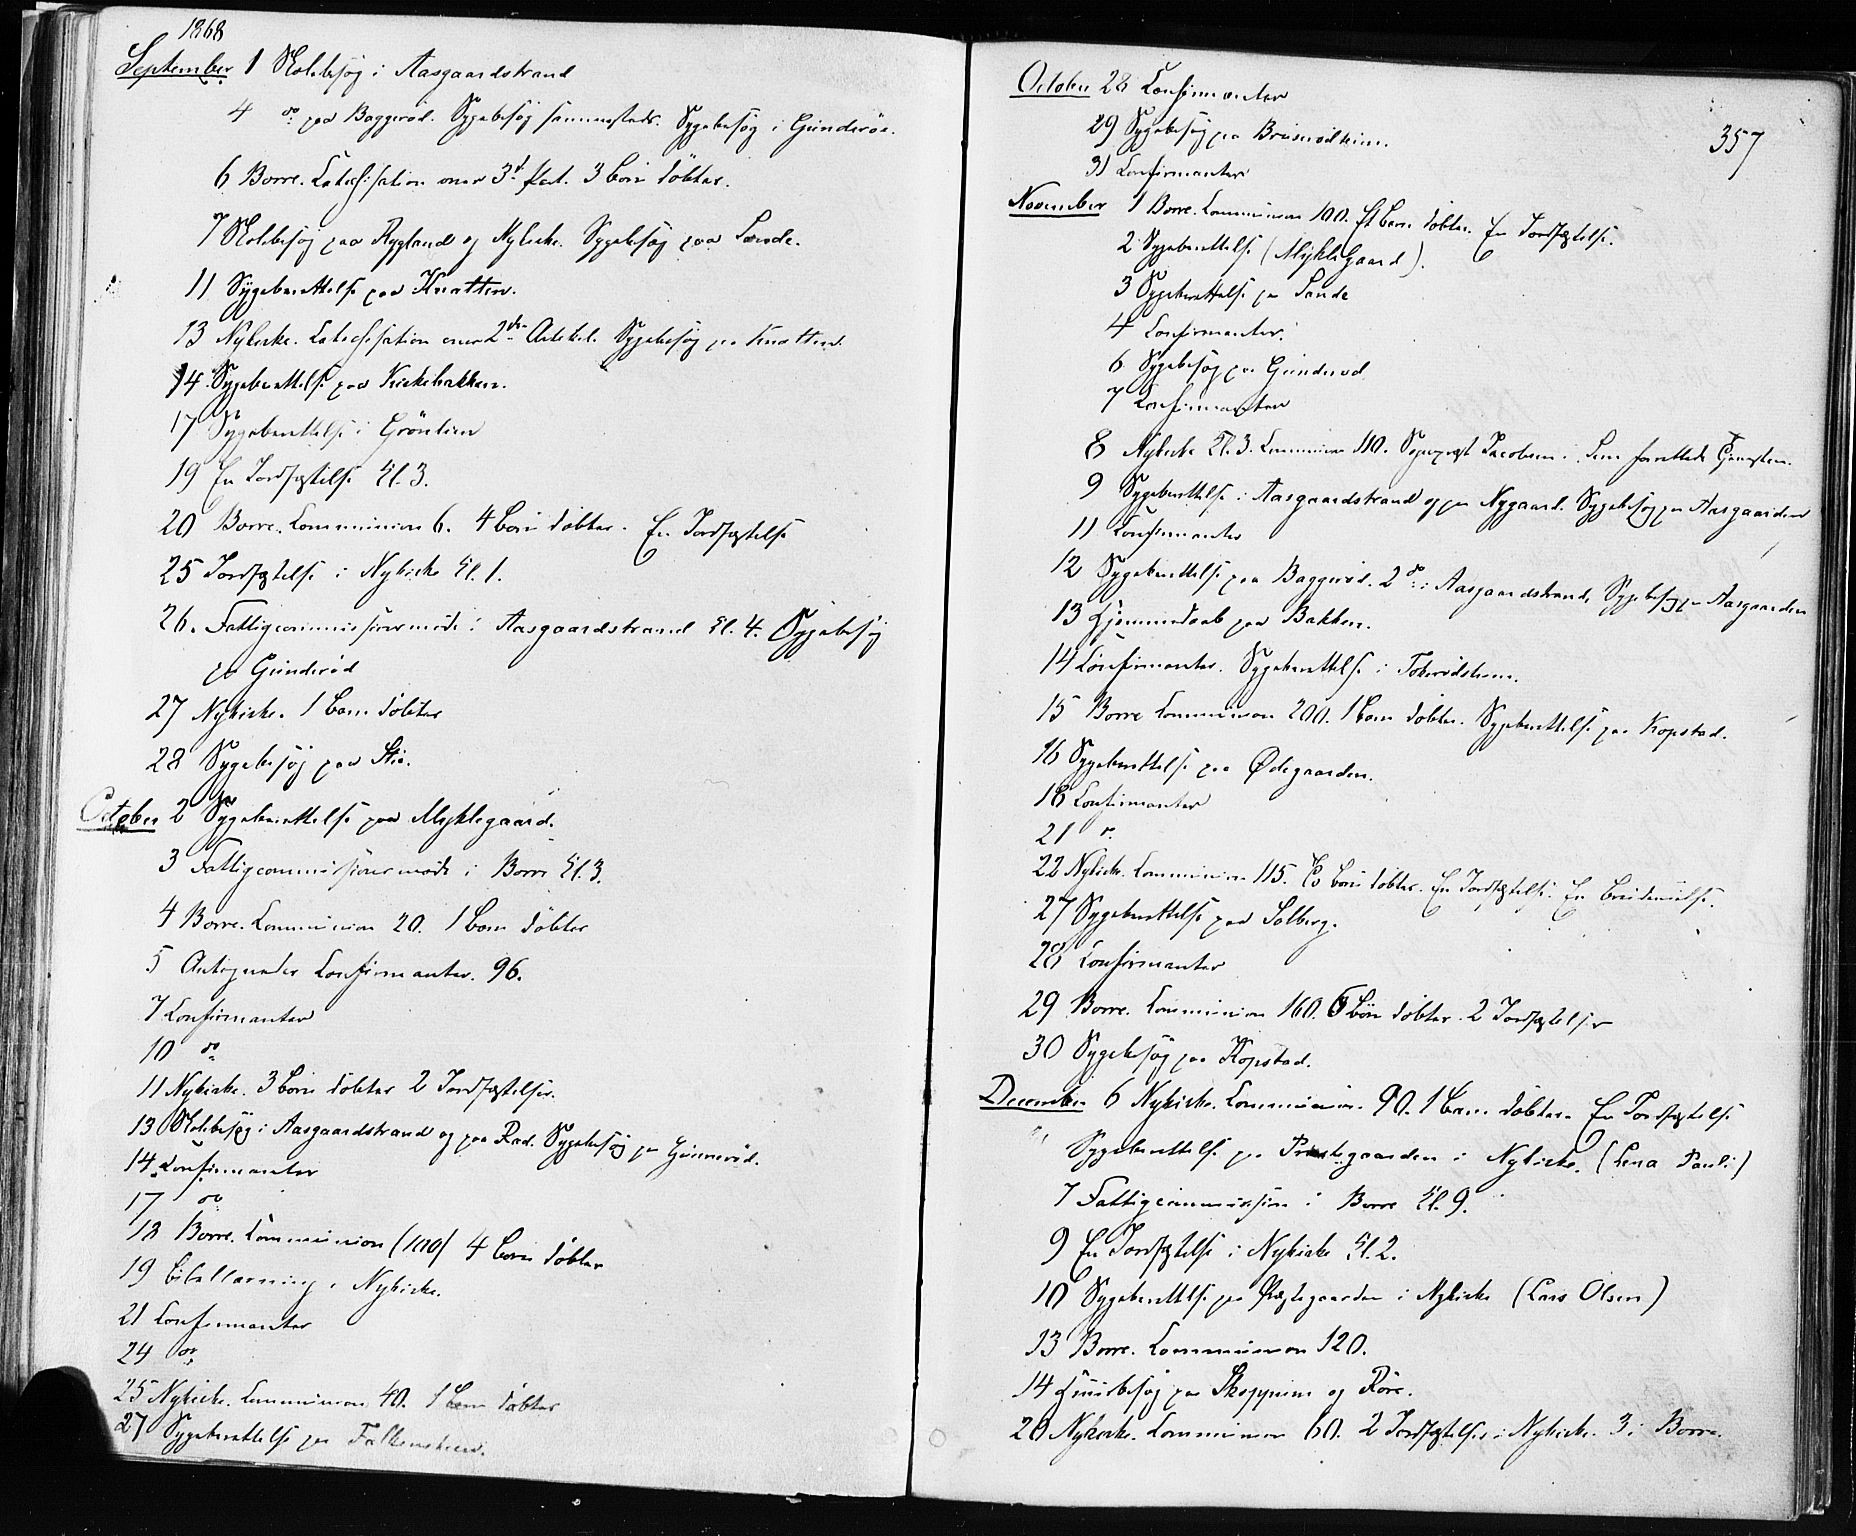 1868
September 1 Skolebesøg i Aasgaardstrand
4 do paa Baggerød. Sygebesøg sammesteds. Sygebesøg i Gunderød.
6 Borre. Catechisation over 3d Part. 3 børn døbte.
7 Skolebesøg paa Rygland og Nykirke. Sygebesøg paa Sande.
11 Sygeberettelse paa Knatten.
13 Nykirke. Catechisation over 2den Artikel. Sygebesøg paa Knatten.
14 Sygeberettelse paa Kirkebakken.
17 Sygeberettelse i Grönlien
19 En Jordfæstelse Kl. 3.
20 Borre. Communion 6. 4 børn døbte. En Jordfæstelse
25 Jordfæstelse i Nykirke Kl. 1.
26. Fattigcommissionsmøde i Aasgaardstrand Kl. 4. Sygebesøg
paa Gunderød
27 Nykirke. 1 barn døbt
28 Sygebesøg paa Stia.
October 2 Sygeberettelse paa Myklegaard.
3 Fattigcommissionsmøde i Borre Kl. 3.
4 Borre. Communion 20. 1 barn døbt
5 Confirmanter. 96.
7 Confirmanter
10 do
11 Nykirke. 3 børn døbte 2 Jordfæstelser.
13 Skolebesøg i Aasgaardstrand og paa Rød. Sygebesøg paa Gunnerød.
14 Confirmanter
17 do
18 Borre. Communion (100) 4 børn døbte
19 Bibellæsning i Nykirke.
21 Confirmanter
24 do
25 Nykirke. Communion 40. 1 barn døbt
27 Sygeberettelse paa Falkensteen.
October 28 Confirmanter
357
29 Sygebesøg paa
31 Confirmanter
November 1 Borre. Communion 100. Et barn døbt. En Jordfæstelse.
2 Sygeberettelse (Myklegaard).
3 Sygeberettelse paa Sande
4 Confirmanter.
6 Sygebesøg paa Gunderød
7 Confirmanter
8 Nykirke Communion 110. Sognepræst Jacobsen forrettede Tjenesten.
9 Sygeberettelse i Aasgaardstrand og paa Nygaard. Sygebesøg paa Aasgaarden
11 Confirmanter
12 Sygeberettelse paa Baggerød. 2 do i Aasgaardstrand. Sygebesøg paa Aasgaarden
13 Hjemmedaab paa Bakken.
14 Confirmanter. Sygeberettelse i
15 Borre Communion 200. 1 barn døbt. Sygeberettelse paa Kopstad.
16 Sygeberettelse paa Ødegaarden.
18 Confirmanter
21 do
22 Nykirke. Communion 115. børn døbte. En Jordfæstelse. En Brudevielse.
27 Sygeberettelse paa Solberg.
28 Confirmanter
29 Borre. Communion 160. 6 børn døbte. 2 Jordfæstelser
30 Sygebesøg paa Kopstad.
December 6 Nykirke. Communion 90. 1 barn døbt. En Jordfæstelse
" Sygeberettelse paa Præstegaarden i Nykirke. (Lena Pauls)
7 Fattigcommission i Borre Kl. 9.
9 En Jordfæstelse i Nykirke Kl. 2.
10 Sygeberettelse paa Præstegaarden i Nykirke (Lars Olsen)
13 Borre. Communion 120.
14 Huusbesøg paa Skoppum og Røre.
20 Nykirke. Communion 60. 2 Jordfæstelser i Nykirke. 3 i Borre.